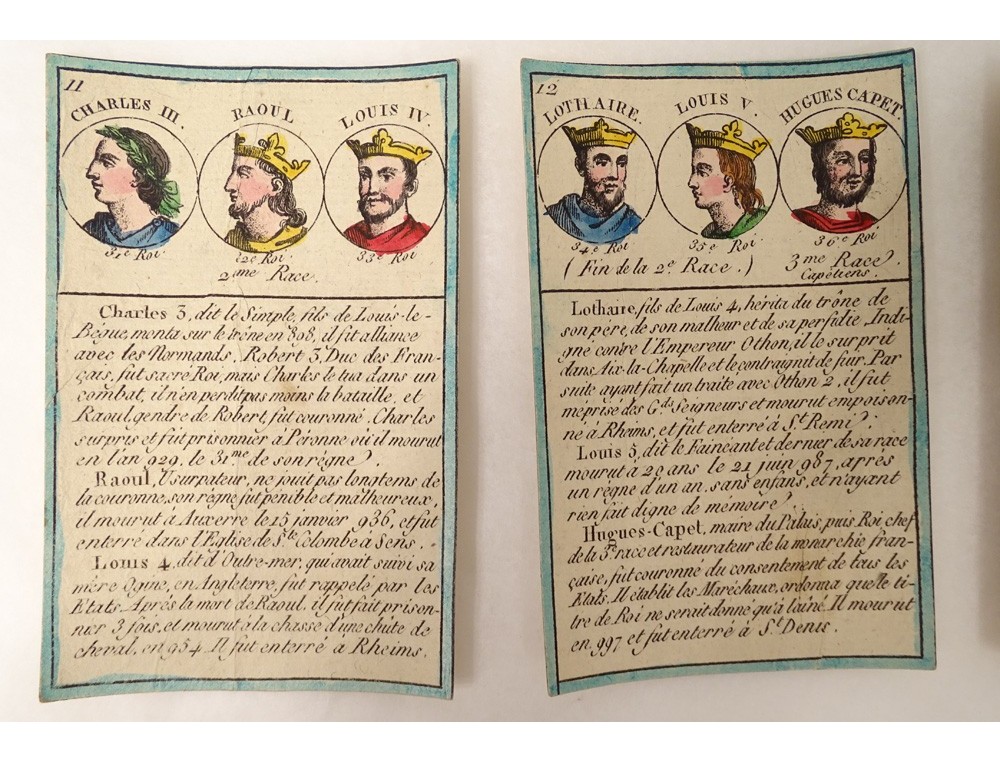 11
CHARLES III.
RAOUL
LOUIS IV.
31e Roi
32e Roi
33e Roi
2eme Race.
Charles 3, dit le Simple, fils de Louis-le-
Bégue, monta sur le trône en 898, il fit alliance
avec les Normands, Robert 3, Duc des Fran-
çais, fut sacré Roi, mais Charles le tua dans un
combat, il n'en perdit pas moins la bataille, et
Raoul, gendre de Robert, fut couronné. Charles
surpris et fut prisonnier à Peronne où il mourut
en l'an 929. le 31.me de son règne.
Raoul, Usurpateur, ne jouit pas longtems de
la couronne, son règne fut pénible et malheureux,
il mourut à Auxerre le 15 janvier 936, et fut
enterré dans l'Eglise de Ste. Colombe à Sens.
Louis 4, dit d'Outre-mer, qui avait suivi sa
mère Ogine, en Angleterre, fut rappelé par les
Etats. Après la mort de Raoul, il fut fait prison-
nier 3 fois, et mourut à la chasse d'une chûte de
cheval, en 954. Il fut enterré à Rheims.
12
LOTHAIRE.
LOUIS V.
HUGUES CAPET.
34e Roi
35e Roi
36e Roi
(Fin de la 2e Race.)
3me Race.
Capétiens.
Lothaire, fils de Louis 4, hérita du trône de
son père, de son malheur et de sa perfidie. Indi-
gné contre l'Empereur Othon, il le surprit
dans Aix-la-Chapelle et le contraignit de fuir. Par
suite ayant fait un traité avec Othon 2, il fut
méprisé des Gds. Seigneurs et mourut empoison-
né à Rheims, et fut enterré à St. Remi.
Louis 5, dit le Fainéant et dernier de sa race
mourut à 20 ans le 21 juin 987, après
un règne d'un an, sans enfans, et n'ayant
rien fait digne de mémoire.
Hugues-Capet, maire du Palais, puis Roi chef
de la 3e race et restaurateur de la monarchie fran-
çaise, fut couronné du consentement de tous les
Etats. Il établit les Maréchaux, ordonna que le ti-
tre de Roi ne serait donné qu'à l'aîné. Il mourut
en 997 et fut enterré à St. Denis.